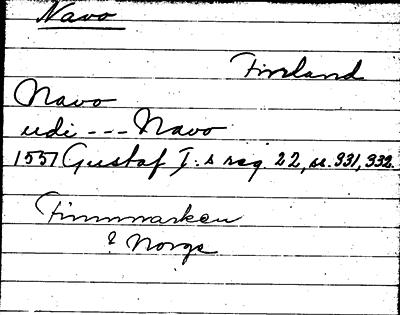 Navo
Finland
Navo
udi --- Navo
1551 Gustaf I:s reg. 22, u. 331, 332.
Finnmarken
? Norge